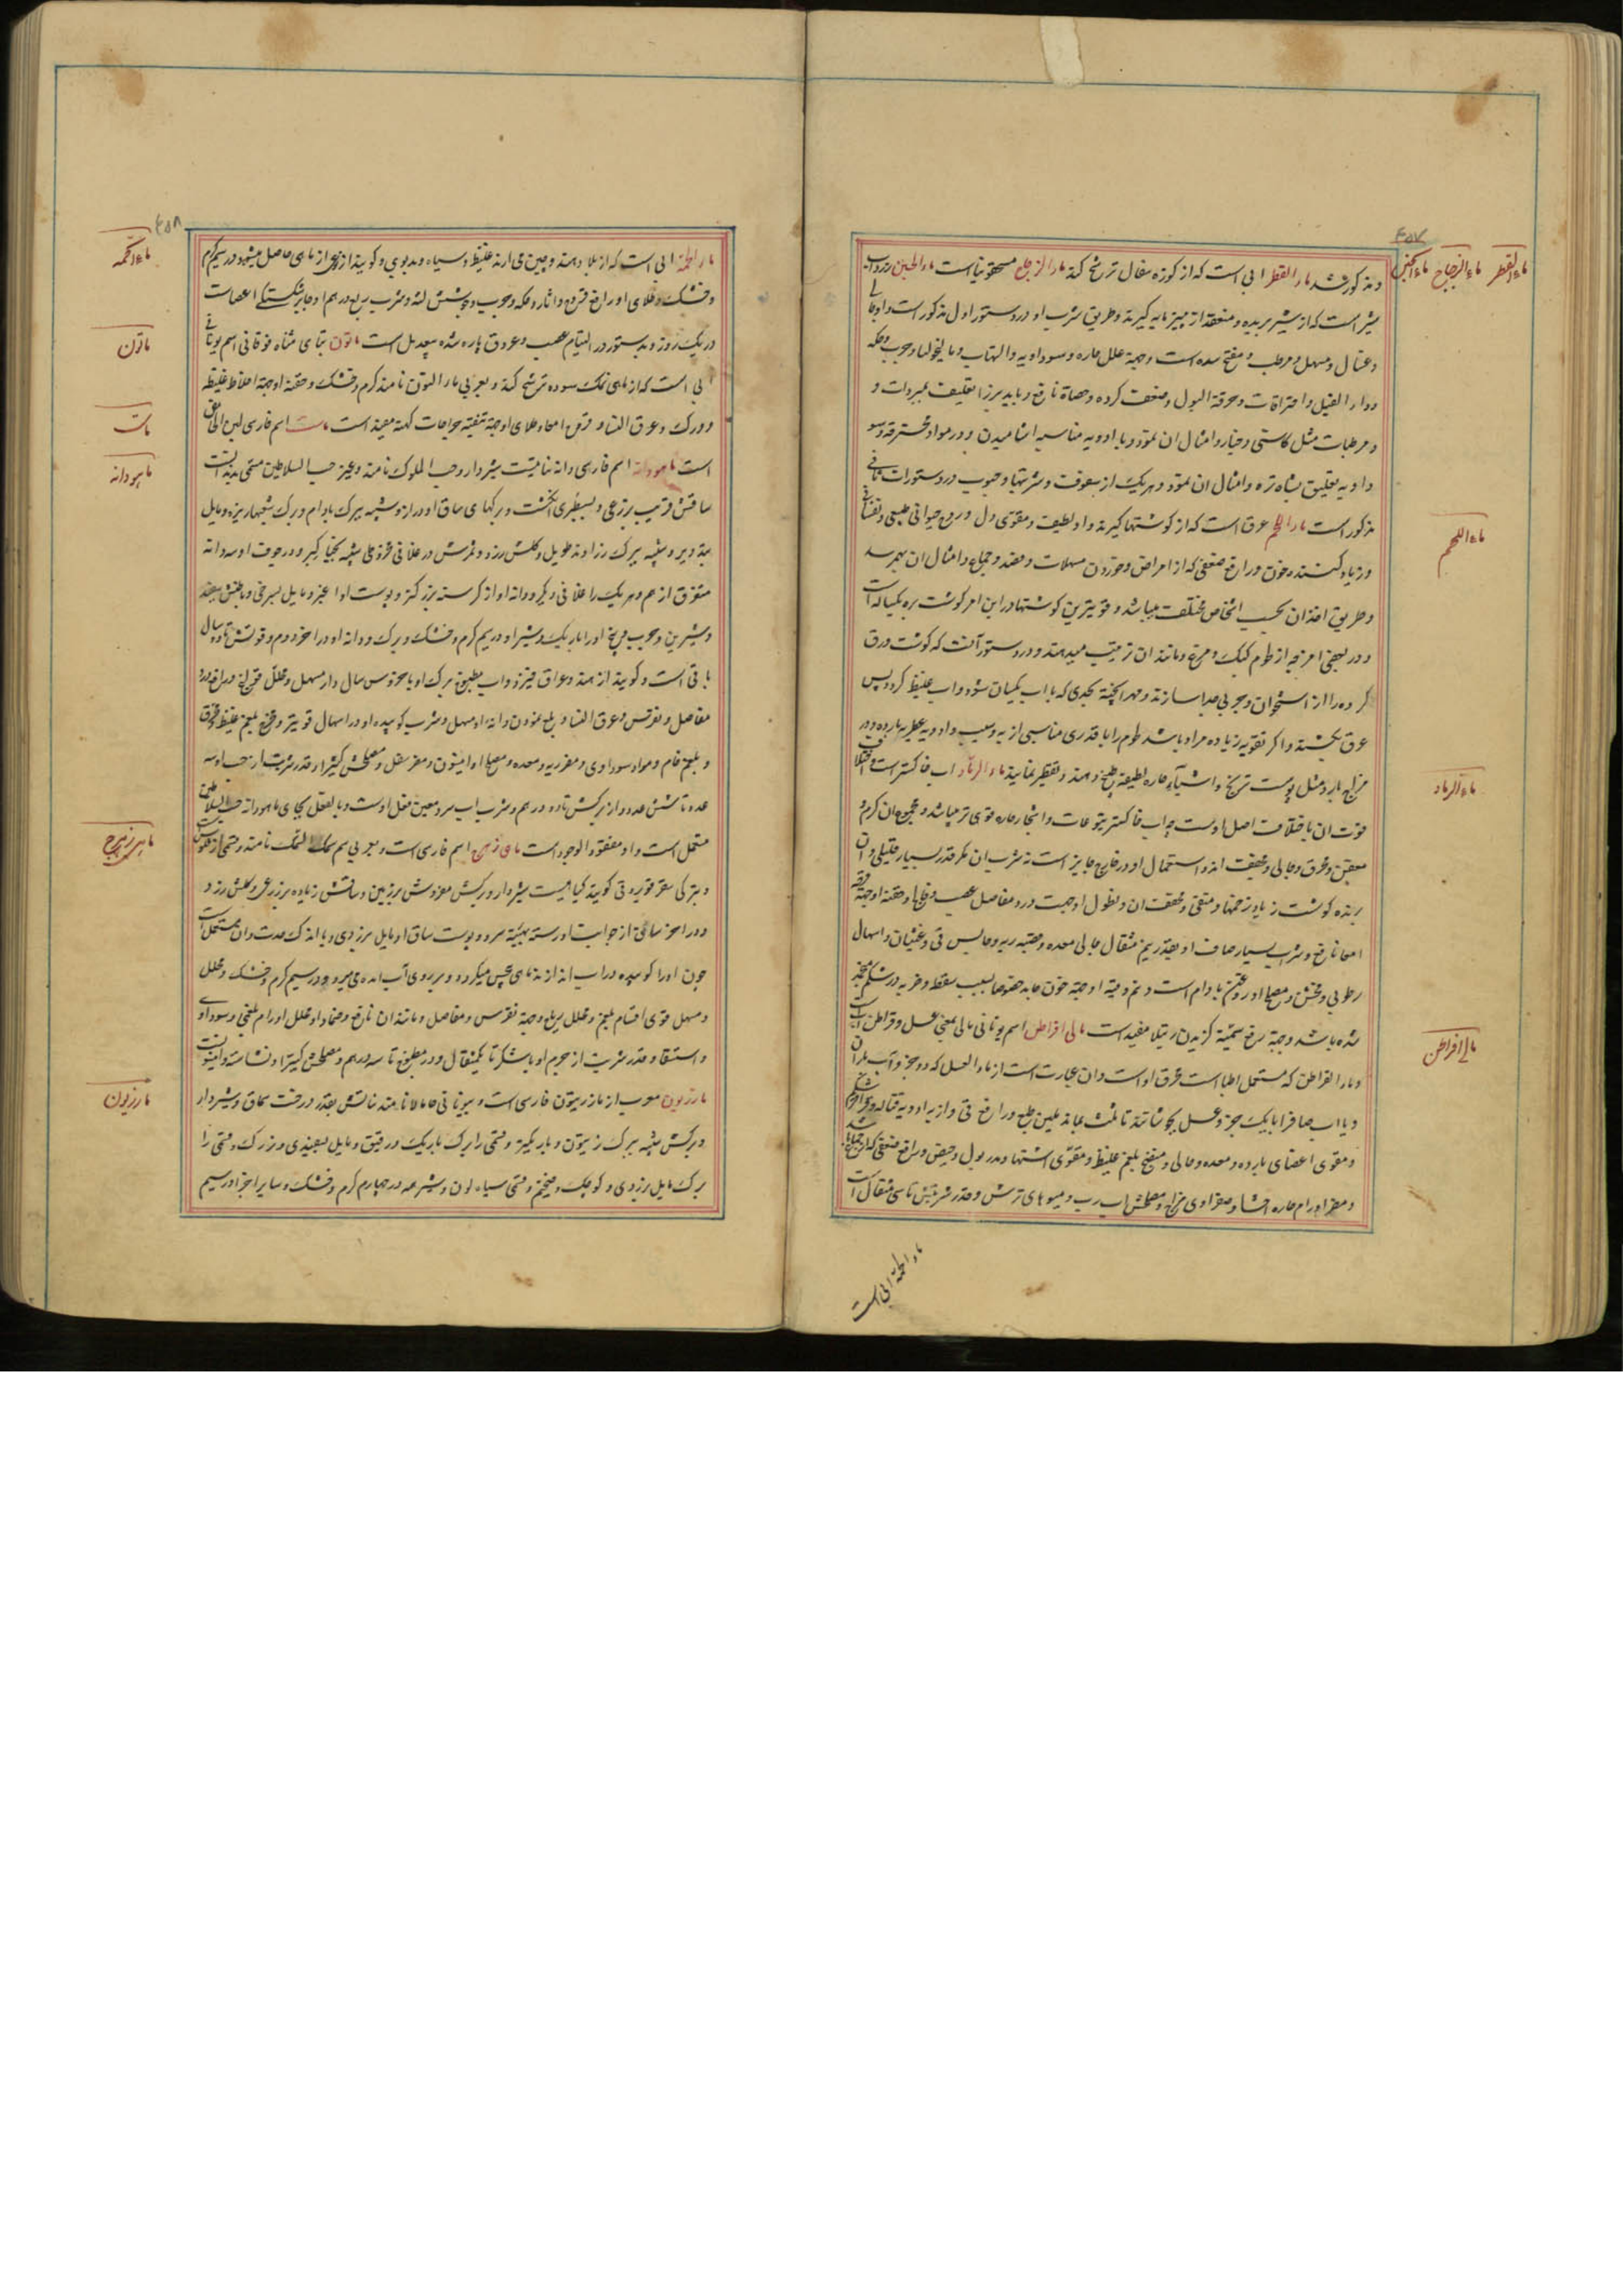 ۴۵۷
ماء القطر ماء الزجاج ماء الجبن
و مذکور شد ماء القطر ابی است که از کوزه سفال ترشح کند ماء الزجاج مسحقونیاست ماء الجبن زرداب
شیر است که از شیر بریده و منعقد از پنیر مایه گیرند و طریق شرب او در دستور اول مذکور است و او جالی
و غسال و مسهل و مرطب و مفتح سده است و جهة علل حاره و سوداویه و التهاب و مالیخولیا و جرب و حکه
و داء الفیل و احتراقات و حرقة البول و ضعف کرده و حصاة نافع و باید بز را تعلیف بمبردات و
و مرطبات مثل کاسنی و خیار و امثال ان نمود و با ادویه مناسبه اشامیدن و در مواد محترقه و سو
داویه تعلیق شاه تره و امثال ان نمود و هر یک از سفوفات و شربتها و حبوب در دستورات ثانی
ماء اللحم
مذکور است ماء اللحم عرق است که از گوشتها گیرند و او لطیف و مقوی دل و روح حیوانی طبیعی و نفسانی
و زیاد کننده خون و رافع ضعفی که از امراض و خوردن مسهلات و فصد و جماع و امثال ان بهمرسد
و طریق اخذ ان بحسب اشخاص مختلف میباشد و قویترین گوشتها در این امر گوشت بره یکساله است
و در بعضی امزجه از لحوم کبک و مرغ و مانند ان ترتیب میدهند و دستور آنست که گوشت ورق
کرده را از استخوان و چربی جدا سازند و مهرا پخته بحدی که با اب یکسان شود و اب غلیظ گردد پس
عرق بکشند و اگر تقویه زیاده مراد باشد لحوم را با قدری مناسبی از به و سیب و ادویه عطریه بارده در
ماء الرماد
مزاج بارد مثل پوست ترنج و اشیاء حاره لطیفه طبخ دهند و تقطیر نمایند ماء الرماد اب خاکستر است و اختلاف
قوت ان باختلاف اصل اوست چه اب خاکستر یتوعات و اشجار حاره قوی تر میباشد و مجموع ان گرم و
معفن و محرق و جالی و مجفف اند و استعمال او در خارج جایز است نه شرب ان مگر قدر بسیار قلیلی و ان
برنده گوشت زیاد زخمها و منقی و مجفف ان و نطول او جهت درد مفاصل عصب و حقنه او جهة قرحه
امعا نافع و شرب بسیار صاف او بقدر نیم مثقال جالی معده و قصبه ریه و حابس قی و غثیان و اسهال
رطوبی و مخشن و مصلح او روغن بادام است و نیم وقیه او جهة خون جامد خصوصا بسبب سقطه و ضربه در شکم منجمد
ماء لی افراطن
شده باشد و جهة رفع سمیة گزیدن رتیلا مفید است مالی افراطن اسم یونانی مالی بمعنی عسل و قراطن اب
و ماء القراطن که مستعمل اطبا است معرق او است و ان عبارت است از ماء العسل که دو جزو آب باران
و یا اب صاف را با یک جزو عسل بجوشانند تا ثلث بماند ملین طبع و رافع قی و از ادویه قتاله
و مقوی اعضای بارده و معده و جالی و منضج بلغم غلیظ و مقوی اشتها و مدر بول و حیض و رافع ضعفی که از جماع
و مضر اورام حاره احشا و صفراوی مزاج و مصلحش اب رب میوهای ترش و قدر شربتش تا سی مثقال است
ماء الحمة ابی است
۴۵۸
ماء الحمه
ماء الحمة ابی است که از بلاد هند و چین می ارند غلیظ و سیاه و بدبوی و گویند از نوعی از ماهی حاصل میشود در سیم گرم
و خشک و طلای او رافع قروح و اثار و حکه و جرب و شرب ربع درهم او جابر شکستگی اعضاست
ماتون
در یک روز و بدستور در التیام عصب و عروق پاره شده بیعدیل است ماتون بتای مثناه فوقانی اسم یونانی
ابی است که از ماهی نمک سوده ترشح کند و بعربی ماء النون نامند گرم و خشک و حقنه او جهة اخلاط غلیظه
ماست
و ورک و عرق النسا و قرحه امعا و طلای او جهة تنقیه جراحات کهنه مفید است ماست اسم فارسی لبن الحامض
ماهودانه
است ماهودانه اسم فارسی دانه نباتیست شیردار و حب الملوک نامند و غیر حب السلاطین مسمی بدند است
ساقش قریب بذرعی و بسطبری انگشت و برگهای ساق او دراز و شبیه ببرگ بادام و برگ شعبها ریزه و مایل
بتدویر و شبیه ببرگ زراوند طویل و گلش زرد و ثمرش در غلافی مخروطی شبیه بخیار کبر و در جوف او سه دانه
متفرق از هم و هر یک را غلافی دیگر و دانه او از کرسنه بزرگتر و پوست او اغبر و مایل بسرخی و باطنش سفید
و شیرین و چرب و بیخ او باریک و شیر او در سیم گرم و خشک و برگ و دانه او در اخر دوم و قوتش تا دو سال
باقی است و گویند از هند و عراق خیزد و اب مطبوخ برگ او با خروس سال دار مسهل و محلل قولنج و رافع درد
مفاصل و نقرس و عرق النسا و بلع نمودن دانه او مسهل و شرب کوبیده او در اسهال قویتر و مخرج بلغم غلیظ و محرق
و بلغم خام و مواد سوداوی و مضر ریه و معده و مصلح او انیسون و مضر مقل و مصلحش کتیرا و قدر شربت از حب او سه
عدد تا شش عدد و از برگش تا دو درهم و شرب اب سرد معین فعل اوست و بالفعل بجای ماهودانه حب السلاطین
ماهی زهرج
مستعمل است و او مفقود الوجود است ماهی زهرج اسم فارسی است و بعربی سم السمک نامند و قسمی از قلومس
و بترکی سغر قویروقی گویند گیاهیست شیردار و برگش مفروش بر زمین و ساقش زیاده بر ذرعی و گلش زرد
و در اخر ساقی از جوانب او رسته بهیئة سرو و پوست ساق او مایل بزردی و با اندک حدت و ان مستعمل است
چون او را کوبیده در اب اندازند ماهی بیحس میگردد و بر روی آب امده می میرد در سیم گرم و خشک و محلل
و مسهل قوی اقسام بلغم و محلل ریاح و جهة نقرس و مفاصل و مانند ان نافع و ضماد او محلل اورام بلغمی و سوداوی
و استسقا و قدر شربت از جرم او با شکر تا یکمثقال و در مطبوخ تا سه درهم و مصلحش کتیرا و نشاسته و انیسون است
مازریون
مازریون معرب از مازریون فارسی است و بیونانی خامالا نامند نباتش بقدر درخت سماق و شیردار
و برگش شبیه ببرگ زیتون و باریکتر و قسمی را برگ باریک و رقیق و مایل بسفیدی و بزرگ و قسمی را
برگ مایل بزردی و کوچک و ضخیم و قسمی سیاه لون و شیر همه در چهارم گرم و خشک و سایر اجزا در سیم